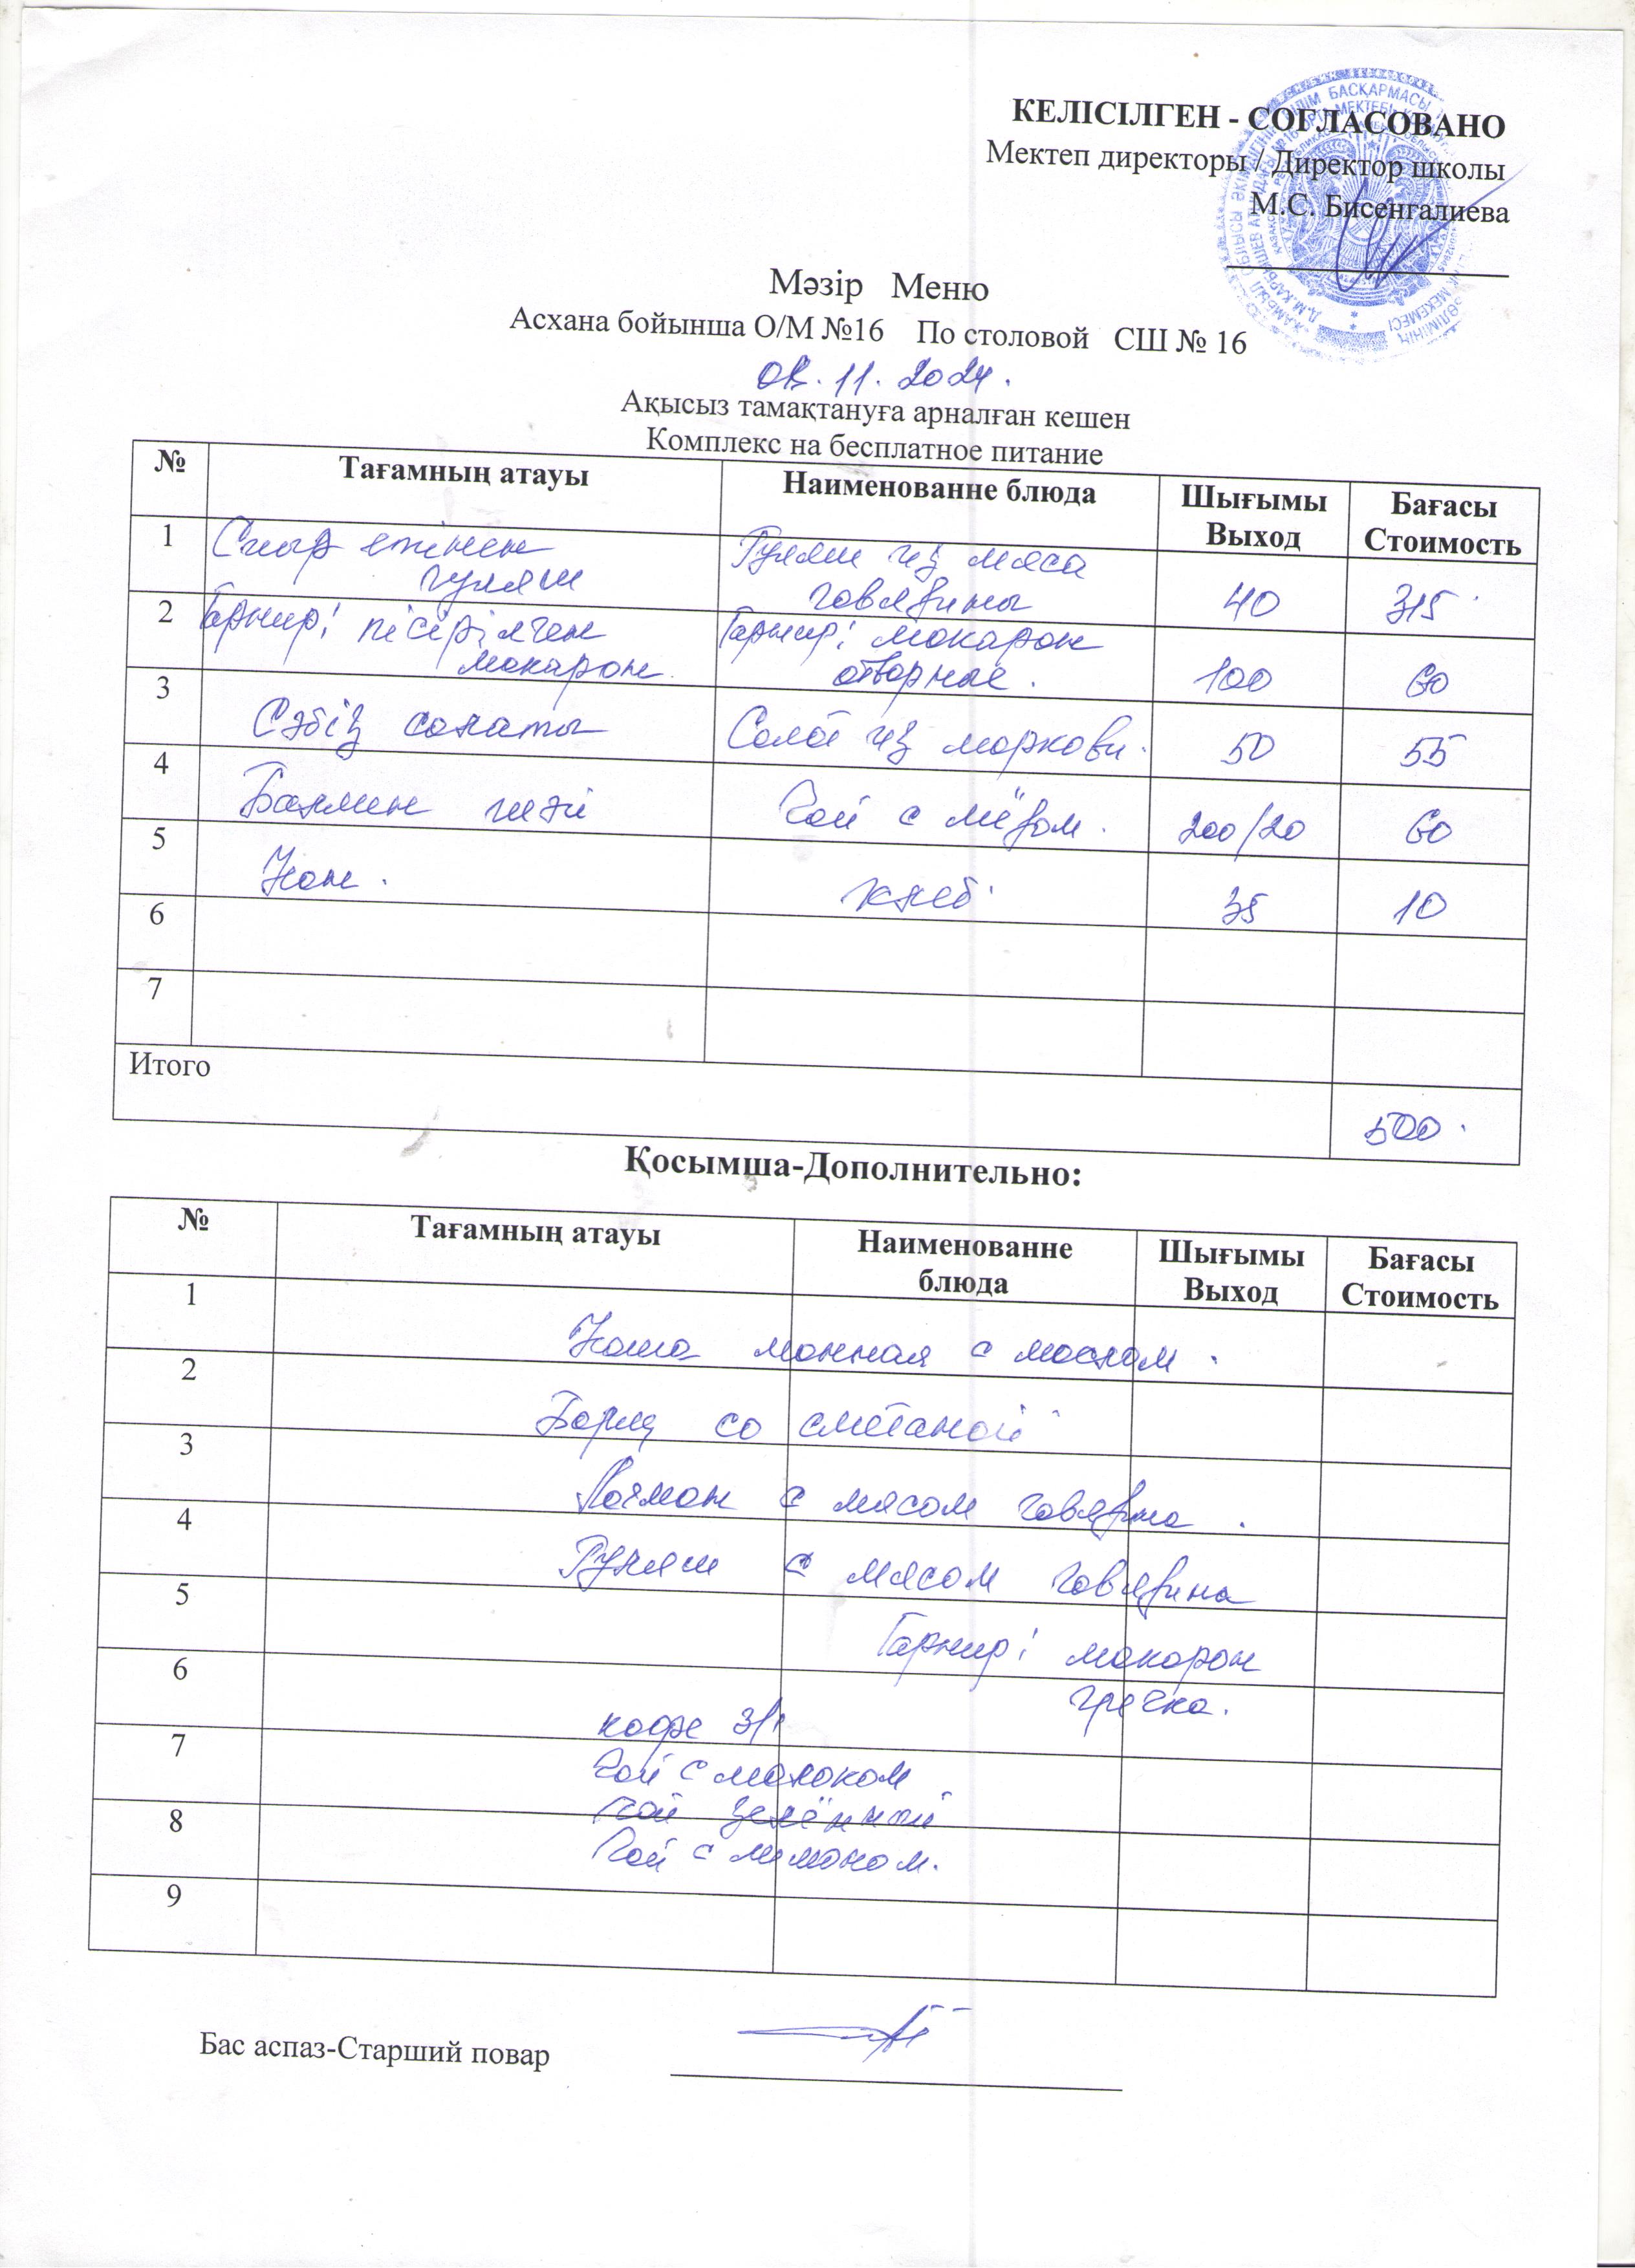 КЕЛІСІЛГЕН - СОГЛАСОВАНО
Мектеп директоры / Директор школы
М.С. Бисенгалиева
Мәзір Меню
Асхана бойынша О/М №16 По столовой СШ № 16
11. 2024.
Ақысыз тамақтануға арналған кешен
Комплекс на бесплатное питание
№ Тағамның атауы Наименованне блюда Шығымы Выход Бағасы Стоимость
1 Сиыр етінен гуляш Гуляш из мяса говядины 40 315
2 Гарнир: пісірілген макарон. Гарнир: макарон отворные. 100 60
3 Сәбіз салаты Салат из моркови. 50 55
4 Балмен шәй Чай с мёдом. 200/20 60
5 Нан. хлеб. 35 10
6
7
Итого
500.
Қосымша-Дополнительно:
№ Тағамның атауы Наименованне блюда Шығымы Выход Бағасы Стоимость
1 Каша манная с маслом.
2 Борщ со сметаной
3 Лагман с мясом говядина.
4 Гуляш с мясом говядина
5 Гарнир: макарон
6 гречка.
кофе 3/1
7 Чай с молоком
Чай зелённый
8 Чай с лимоном.
9
Бас аспаз-Старший повар